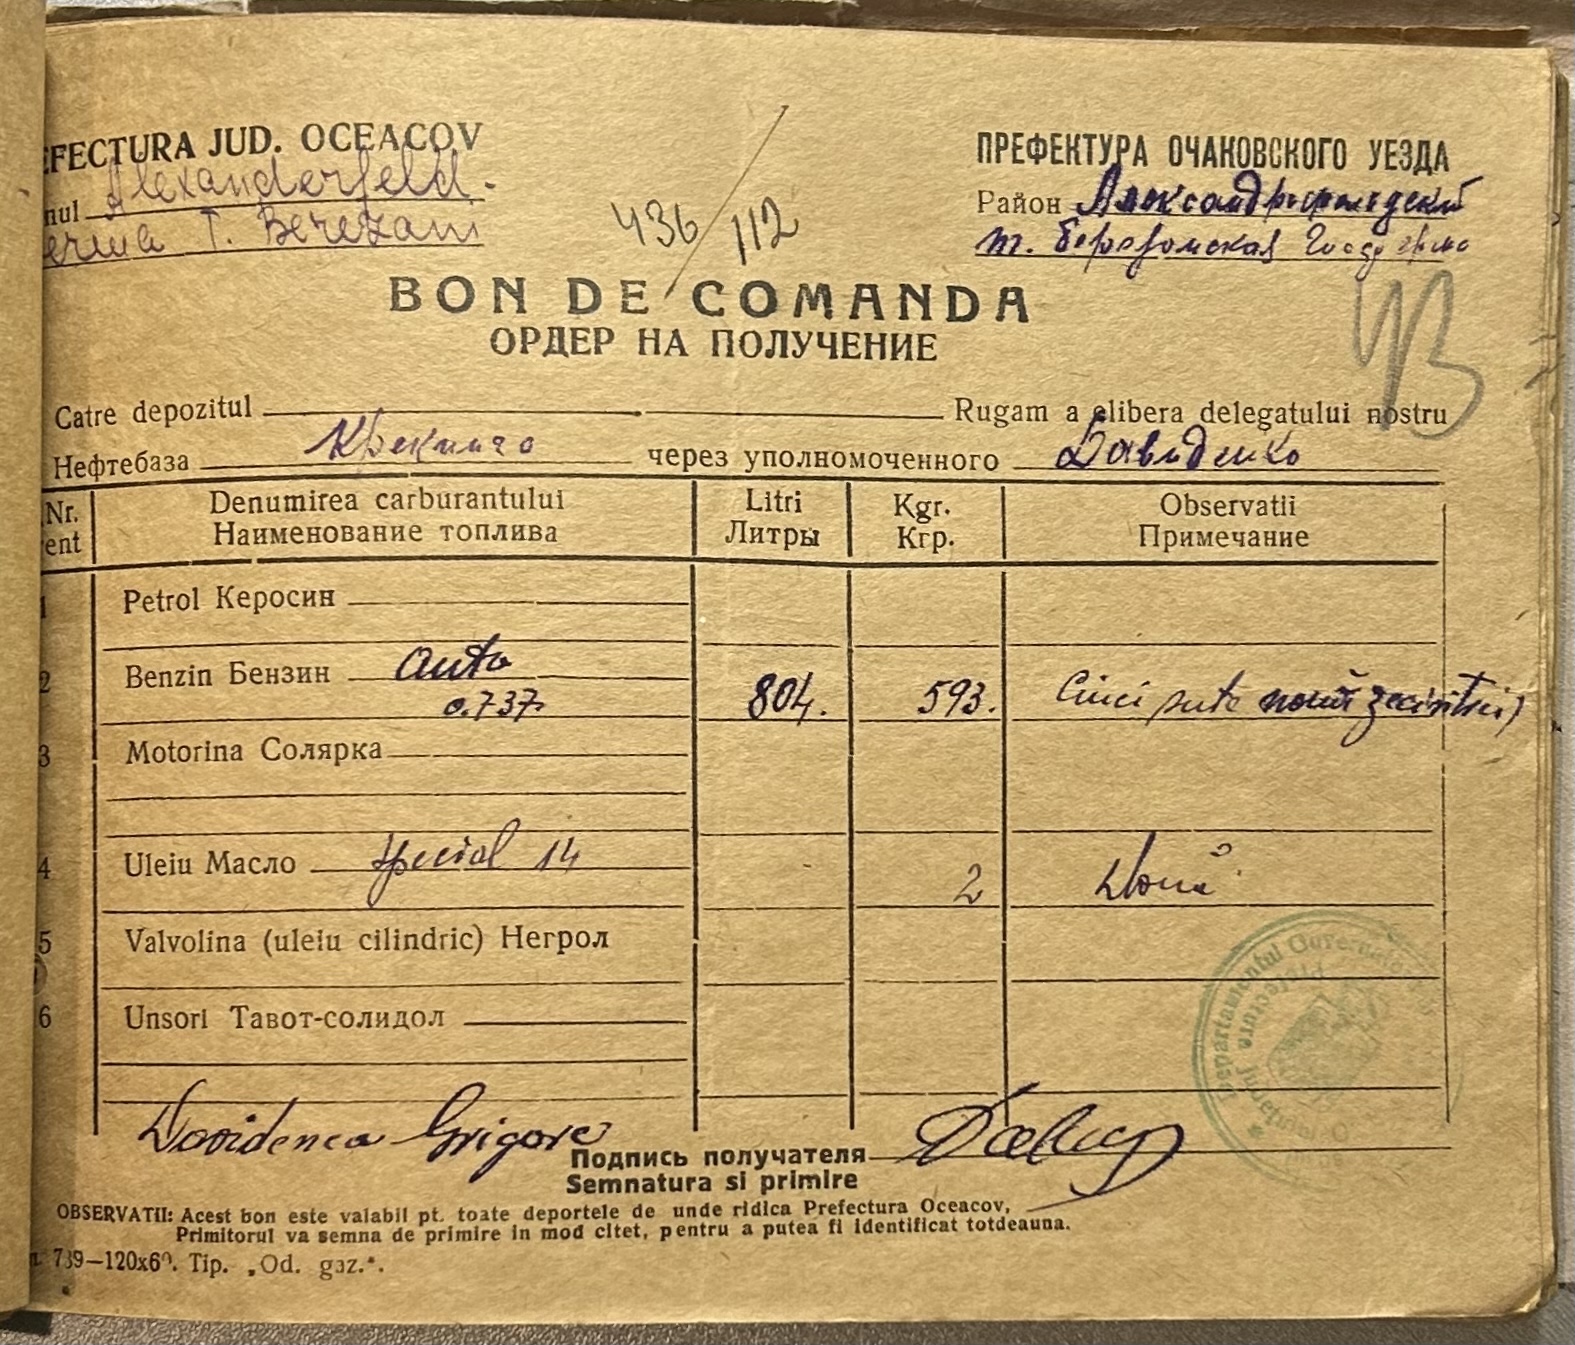 EFECTURA JUD. OCEACOV
nul Alexanderfeld.
erma T. Berezani
436/112
ПРЕФЕКТУРА ОЧАКОВСКОГО УЕЗДА
Район Александрфельдский
т. Березанская Госферма
BON DE COMANDA
ОРДЕР НА ПОЛУЧЕНИЕ
43
Catre depozitul Rugam a elibera delegatului nostru
Нефтебаза Крекинга через уполномоченного Давиденко
Nr. Denumirea carburantului Litri Kgr. Observatii
ent Наименование топлива Литры Кгр. Примечание
1 Petrol Керосин
2 Benzin Бензин auto
0.737 804. 593. Cinci sute nouă zeci si trei)
3 Motorina Солярка
4 Uleiu Масло special 14 2 Două
5 Valvolina (uleiu cilindric) Негрол
6 Unsori Тавот-солидол
Departamentul Guvern
Prefectura Județului O
Davidenco Grigore
Подпись получателя
Semnatura si primire
OBSERVATII: Acest bon este valabil pt. toate deportele de unde ridica Prefectura Oceacov,
Primitorul va semna de primire in mod citet, pentru a putea fi identificat totdeauna.
739—120x60. Tip. „Od. gaz.".